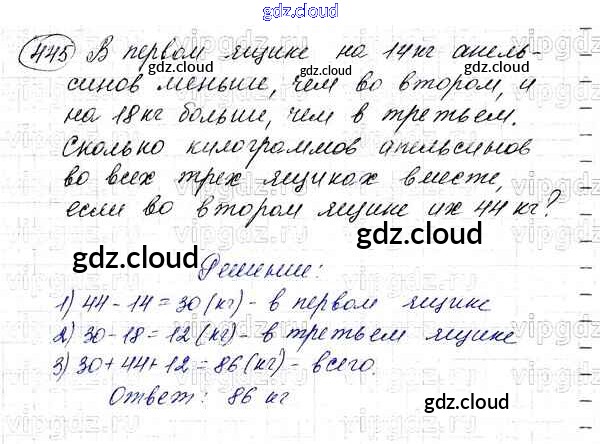 gdz.cloud
445 В первом ящике на 14 кг апель-
gdz.cloud gdz.cloud
синов меньше, чем во втором, и
на 18 кг больше, чем в третьем.
Сколько килограммов апельсинов
во всех трех ящиках вместе,
если во втором ящике их 44 кг?
gdz.cloud
gdz.cloud
Решение:
1) 44 - 14 = 30 (кг) - в первом ящике
2) 30 - 18 = 12 (кг) - в третьем ящике
3) 30 + 44 + 12 = 86 (кг) - всего.
Ответ: 86 кг
gdz.cloud
gdz.cloud